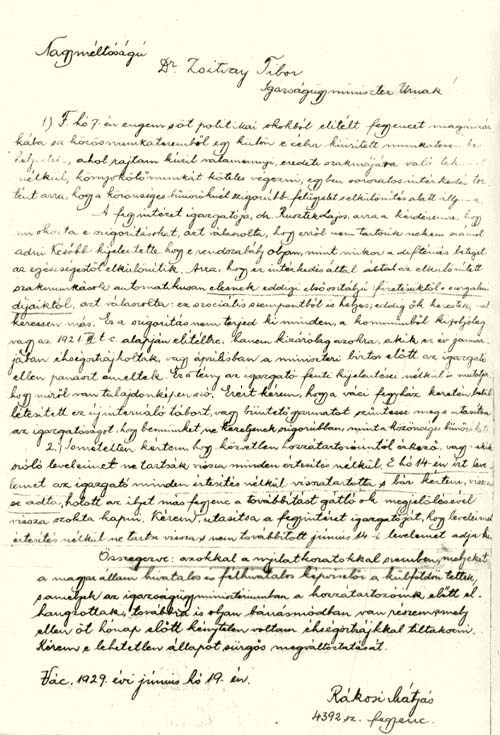 Nagyméltóságú
Dr. Zsitvay Tibor
Igazságügyminiszter Urnak!
1) F. hó 7-én engem s öt politikai okokból elitélt fegyencet magánzár-
kába s a közös munkateremből egy külön e célra kiürített munkaterembe
helyeztek, ahol rajtam kívül valamennyi, eredeti szakmájára való
nélkül, könyvkötőmunkát köteles végezni, egyben sorozatos intézkedés tör-
tént arra, hogy a közönséges bűnözőknél szigorúbb felügyelet s elkülönítés alatt
A fegyintézet igazgatója, dr. Rusztek Lajos, arra a kérdésemre, hogy
mi okozta e szigorításokat, azt válaszolta, hogy erről nem tartozik nekem
adni. Később kijelentette, hogy e rendszabály olyan, mint mikor a difteriás beteget
az egészségestől elkülönítik. Arra, hogy ez intézkedés által az elkülönített
szakmunkások automatikusan elesnek eddigi elsőosztályú fizetésüktől s szorgalmi
díjaiktól, azt válaszolta: ez szociális szempontból is helyes; eddig ők kerestek,
keressen más. Ez a szigorítás nem terjed ki minden, a kommunből kifolyólag
vagy az 1921 III t c. alapján elitéltre, hanem kizárólag azokra, akik ez év január-
jában éhségsztrájkoltak, vagy áprilisban a miniszteri biztos előtt az igazgató
ellen panaszt emeltek. Ez a tény az igazgató fenti kijelentései nélkül is mutatja,
hogy miről van tulajdonképen szó. Ezért kérem, hogy a váci fegyház keretein belül
létesített ez új internáló tábort, vagy büntető garmatot szüntesse meg s utasítsa
az igazgatóságot, hogy bennünket ne kezeljenek szigorúbban, mint a közönséges bűnözőket.
2.) Ismételten kértem, hogy közvetlen hozzátartozóimtól érkező, vagy
szóló leveleimet ne tartsák vissza minden értesítés nélkül. E hó 14-én írt leve-
lemet az igazgató minden értesítés nélkül visszatartotta, s bár kértem, vissza
se adta, holott az ilyet más fegyenc a továbbítást gátló ok megjelölésével
vissza szokta kapni. Kérem, utasítsa a fegyintézet igazgatóját, hogy leveleimet
értesítés nélkül ne tartsa vissza s nem továbbított június 14-i levelemet adja ki.
Összegezve: azokkal a nyilatkozatokkal szemben, melyeket
a magyar állam hivatalos és félhivatalos képviselői a külföldön tettek,
s amelyek az igazságügyminisztériumban a hozzátartozóink előtt el-
hangzottak, továbbra is olyan bánásmódban van részem, mely
ellen öt hónap előtt kénytelen voltam éhségsztrájkkal tiltakozni.
Kérem e lehetetlen állapot sürgős megváltoztatását.
Vác, 1929. évi június hó 19. én.
Rákosi Mátyás
4392 sz. fegyenc.